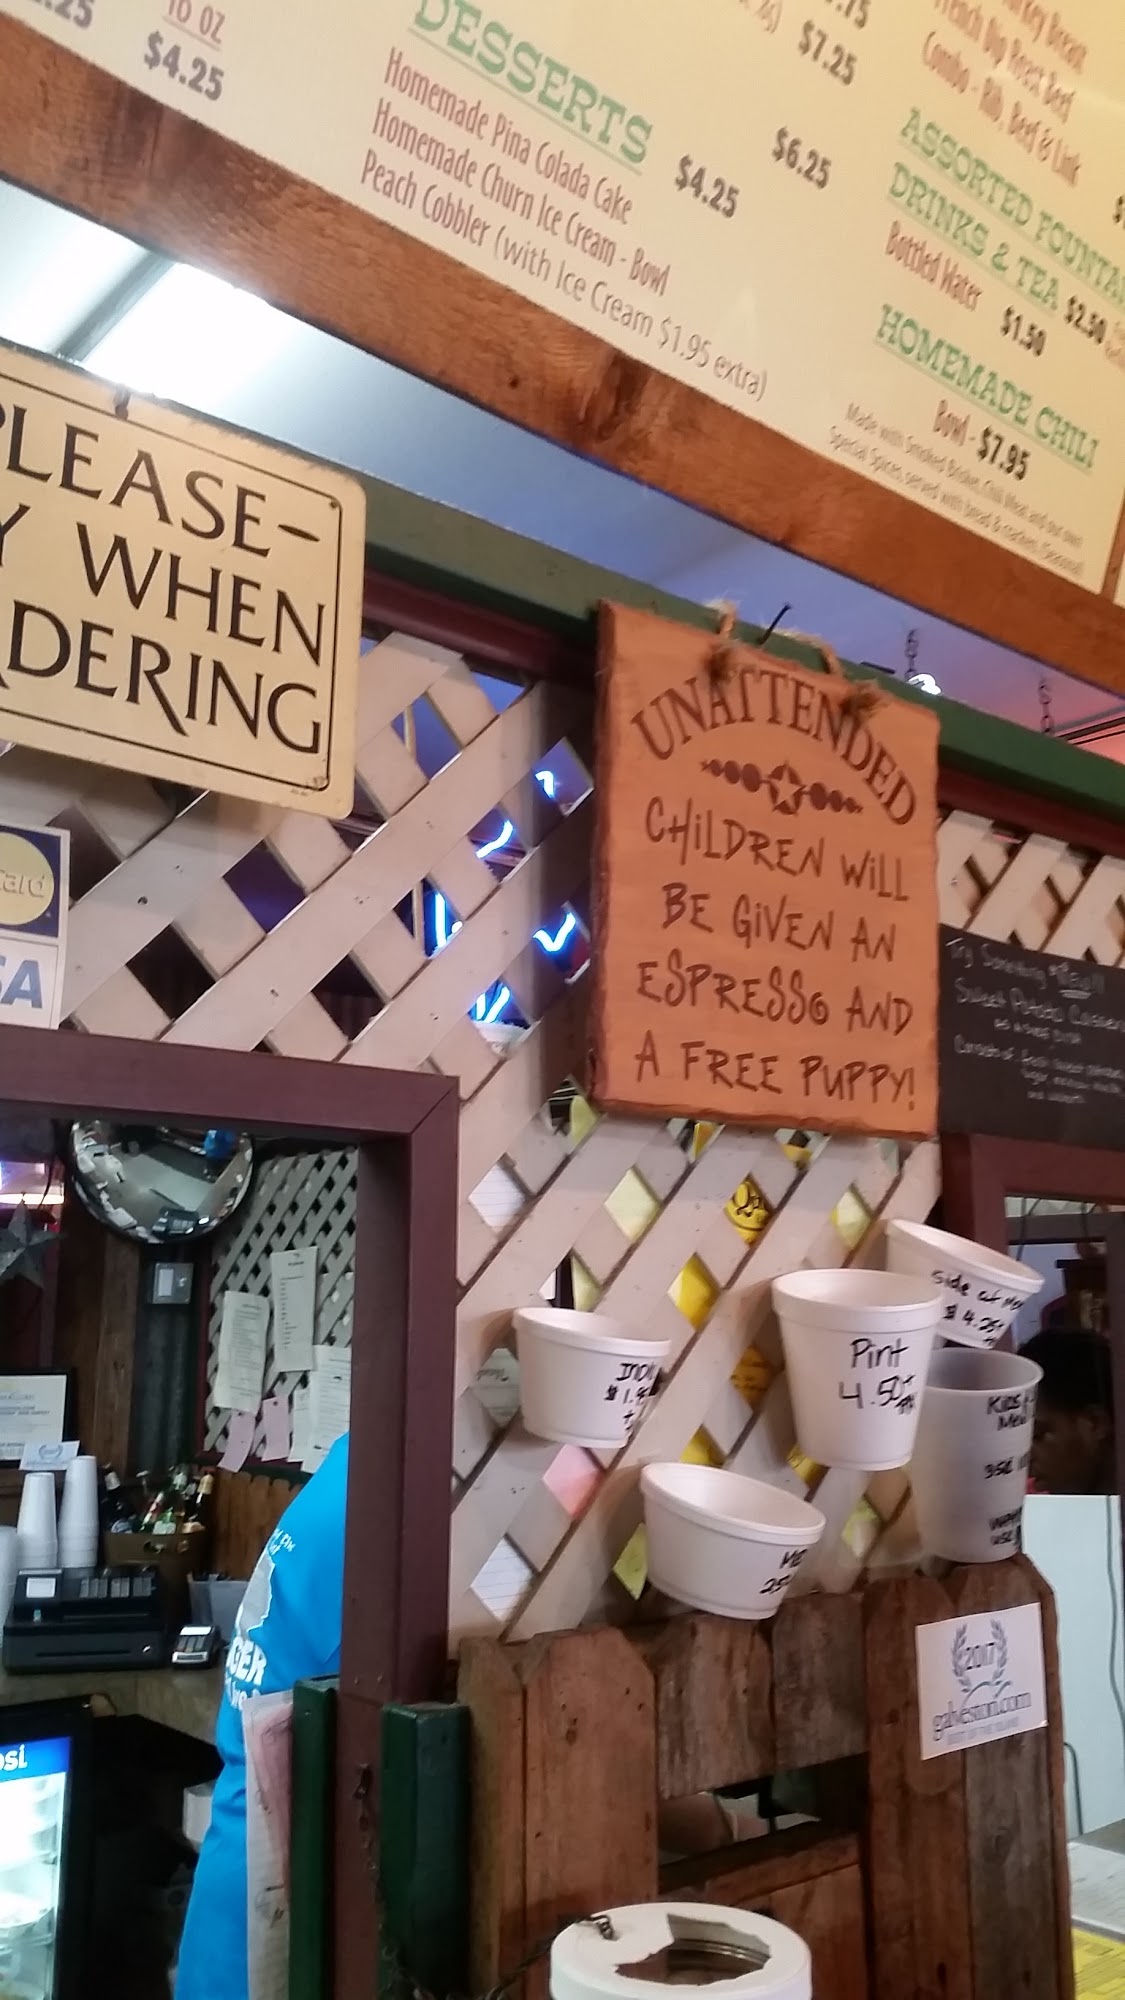 .25
16 OZ
$4.25
DESSERTS
Homemade Pina Colada Cake
$4.25
Homemade Churn Ice Cream - Bowl
Peach Cobbler (with Ice Cream $1.95 extra)
.75
$7.25
$6.25
Turkey Breast
French Dip Roast Beef
Combo - Rib, Beef & Link
ASSORTED FOUNTAI
DRINKS & TEA $2.50
Bottled Water $1.50
HOMEMADE CHILI
Bowl - $7.95
Made with Smoked Brisket, Chili Meat and our own
Special Spices, served with bread & crackers. (Seasonal)
PLEASE-
Y WHEN
RDERING
Card
SA
UNATTENDED
CHiLDREN WiLL
BE GiVEN AN
ESPRESSO AND
A FREE PUPPY!
Try Something NEW!!
Sweet Potato
as a side
side
$4.25+
Pint
4.50+
$1.
Kids
2017
galveston.com
BEST OF THE ISLAND
GER
si